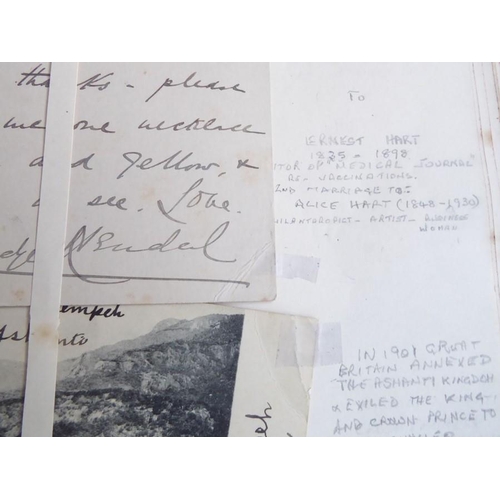 thanks - please
me one necklace
and Yellow, &
see. Love.
Kendal
To
ERNEST HART
1835 - 1898
ITOR OF "MEDICAL JOURNAL"
RE- VACCINATIONS.
2ND MARRIAGE TO:
ALICE HART (1848 - 1930)
HILANTHROPIST - ARTIST - BUSINESS
WOMAN
empeh
Ashanti
peh
IN 1901 GREAT
BRITAIN ANNEXED
THE ASHANTI KINGDOM
& EXILED THE KING
AND CROWN PRINCE TO